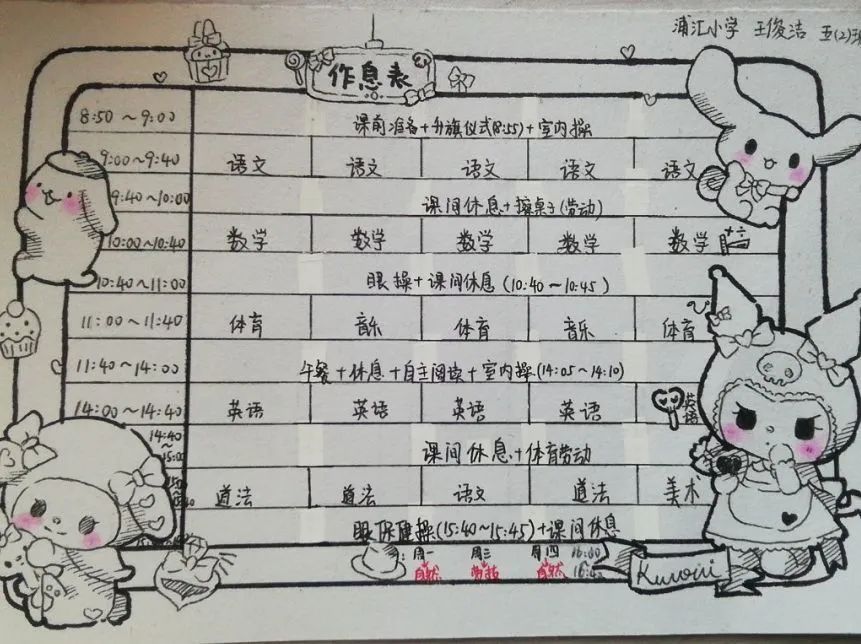 浦汇小学 王俊洁 五(2)班
作息表
8:50~9:00 课前准备+升旗仪式(8:55)+室内操
9:00~9:40 语文 语文 语文 语文 语文
9:40~10:00 课间休息+擦桌子(劳动)
10:00~10:40 数学 数学 数学 数学 数学
10:40~11:00 眼操+课间休息(10:40~10:45)
11:00~11:40 体育 音乐 体育 音乐 体育
11:40~14:00 午餐+休息+自主阅读+室内操(14:05~14:10)
14:00~14:40 英语 英语 英语 英语 英语
14:40~15:00 课间休息+体育劳动
道法 道法 语文 道法 美术
眼保健操(15:40~15:45)+课间休息
周一 周三 周四 16:00
自然 劳技 自然
Kuromi